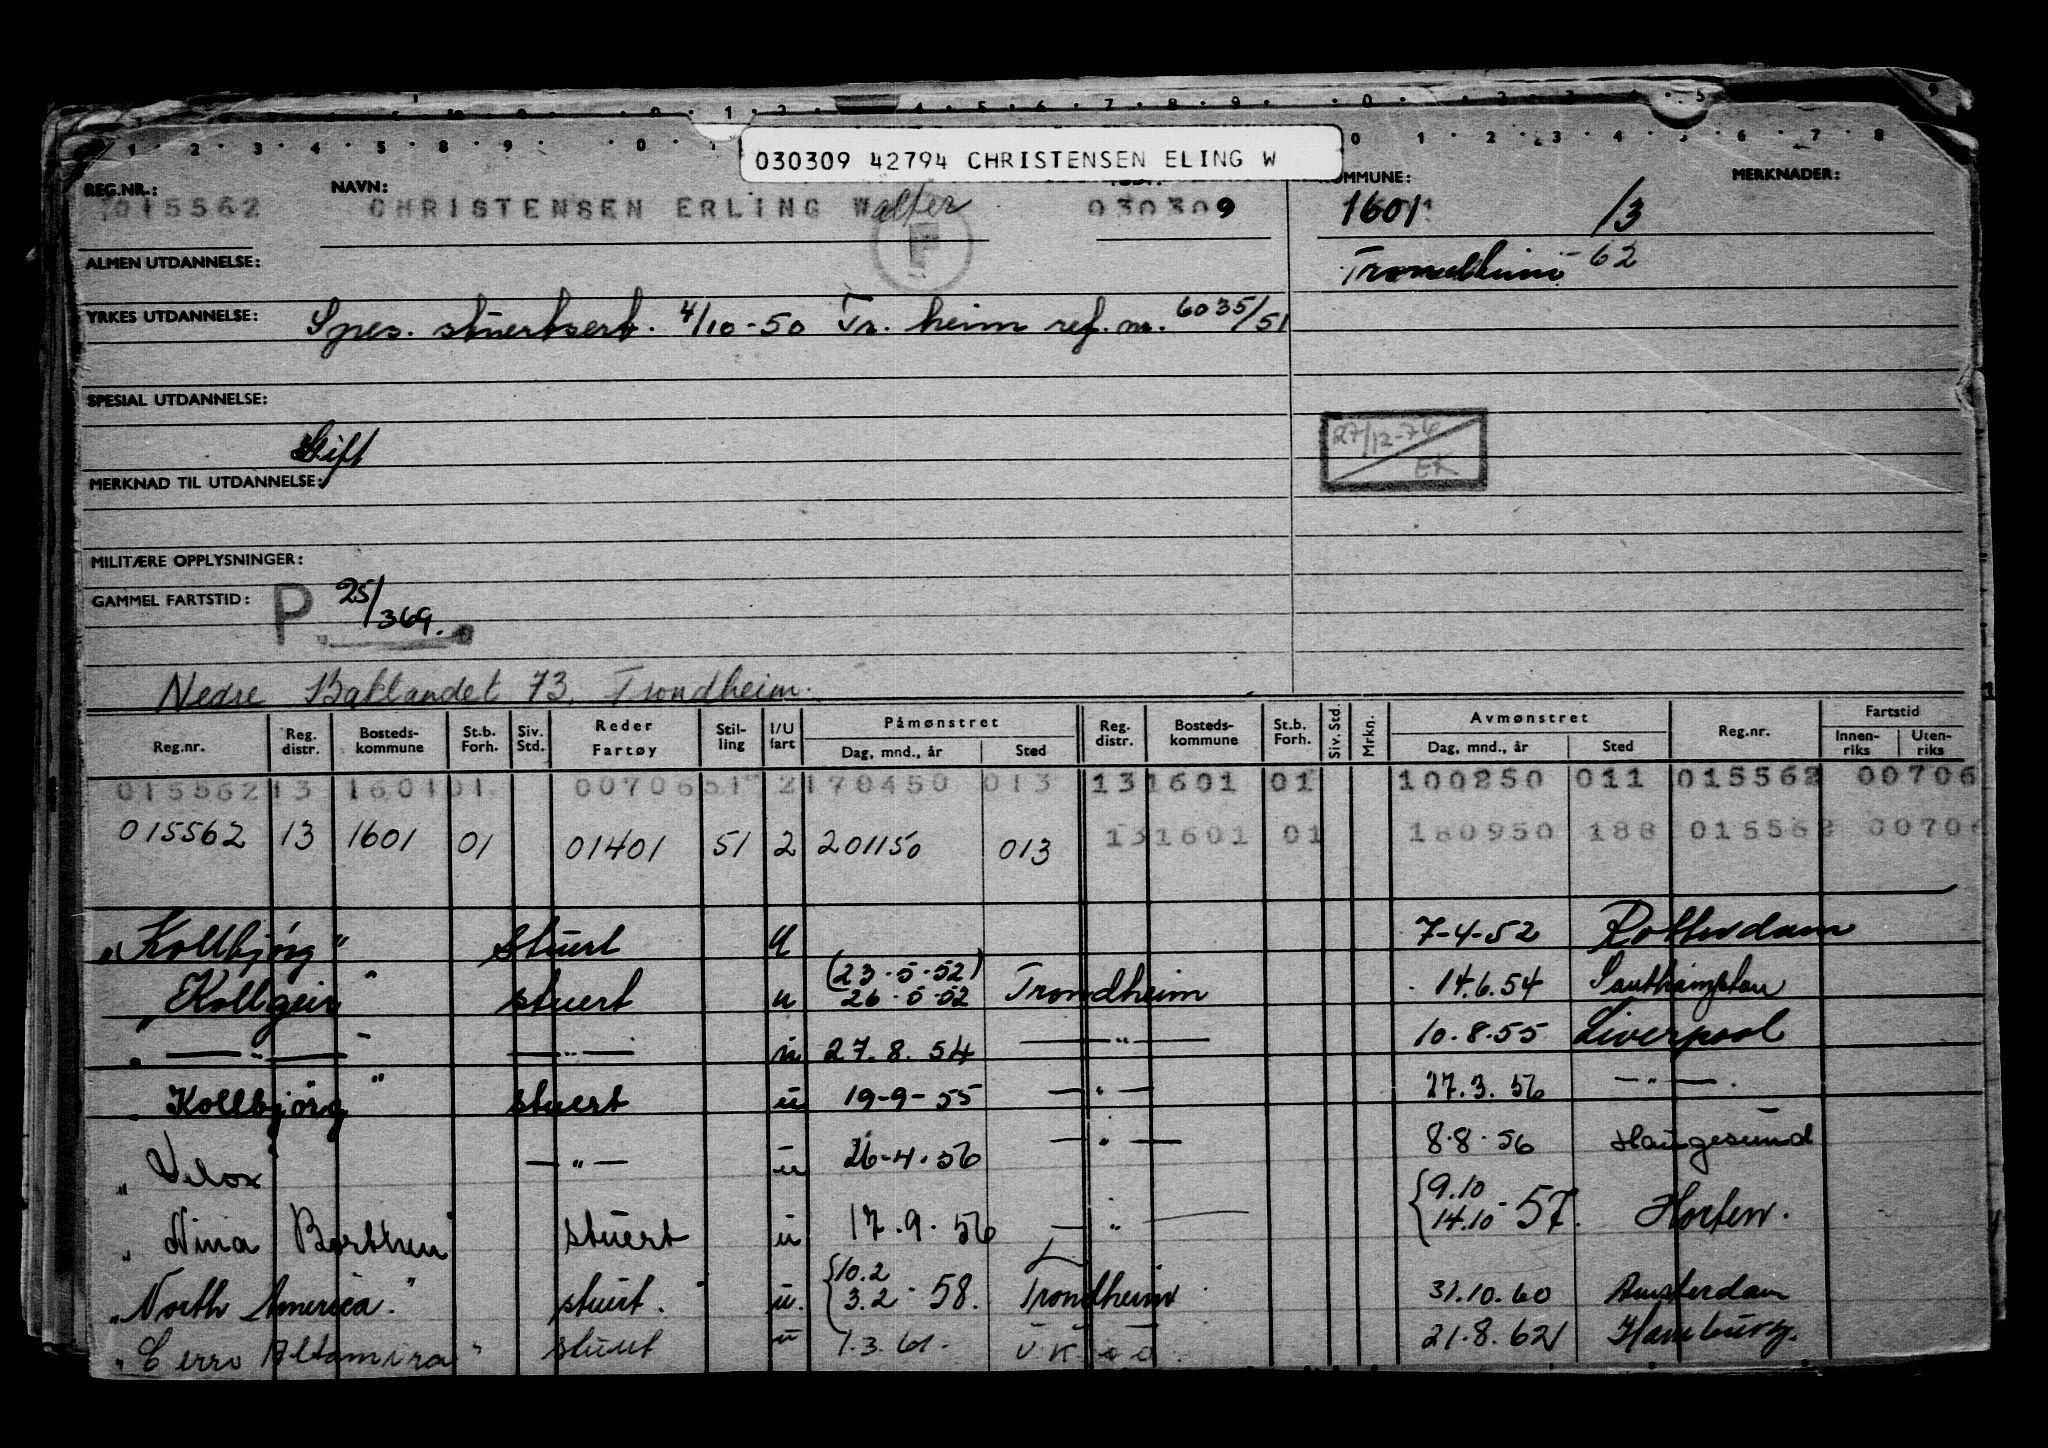 030309 42794 CHRISTENSEN ELING W
REG.NR.: NAVN: KOMMUNE: MERKNADER:
015562 CHRISTENSEN ERLING Walter 030309 1601 /3
F
ALMEN UTDANNELSE: Trondheim -62
YRKES UTDANNELSE: Spes. stuertsert. 4/10-50 Tr. heim ref. nr. 6035/51
SPESIAL UTDANNELSE:
Gift
27/12-74
EK
MERKNAD TIL UTDANNELSE:
MILITÆRE OPPLYSNINGER:
GAMMEL FARTSTID: P. 25/369.
Nedre Baklandet 73. Trondheim.
Reg.nr. Reg. distr. Bosteds- kommune St.b. Forh. Siv. Std. Reder Fartøy Stil- ling I/U fart Påmønstret Dag, mnd., år Sted Reg. distr. Bosteds- kommune St.b. Forh. Siv. Std. Mrkn. Avmønstret Dag, mnd., år Sted Reg.nr. Fartstid Innen- riks Uten- riks
015562 13 1601 01 00706 51 2 170450 013 13 1601 01 100250 011 015562 00706
015562 13 1601 01 01401 51 2 201150 013 13 1601 01 180950 188 015562 00706
"Kollbjørg" stuert U 7-4-52 Rotterdam
"Kollgeir" stuert u (23.5.52) 26.5.52 Trondheim 14.6.54 Southampton
" — " — " — " — u 27.8.54 — " — 10.8.55 Liverpool
"Kollbjörg" stuert u 19-9-55 — " — 27.3.56 — " —.
"Velox" — " — u 26-4.56 — " — 8.8.56 Haugesund
"Nina Borthen" stuert u 17.9.56 — " — {9.10 14.10 -57. Horten.
"North America." stuert. u. {10.2 3.2 -58. Trondheim 31.10.60 Amsterdam
"Cerro Altamira" stuert u 1.3.61. 21.8.62 Hamburg.